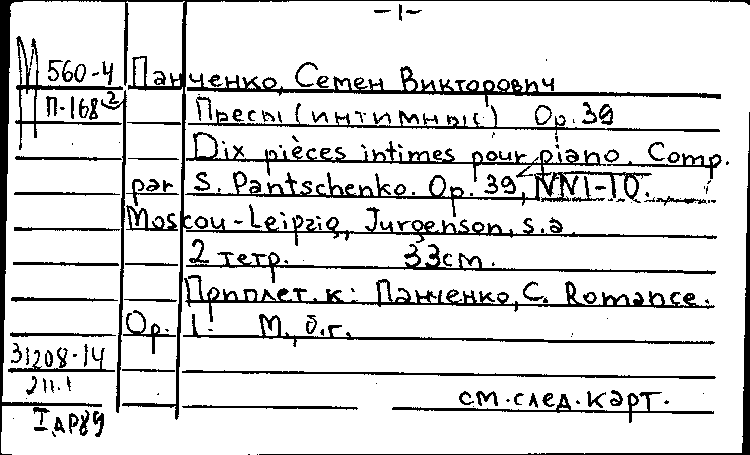 -1-
М 560-4 Панченко, Семен Викторович
П-168² Пресы (интимные) Op. 39
Dix pièces intimes pour piano. Comp.
par S. Pantschenko. Op. 39, NN1-10.
Moscou-Leipzig, Jurgenson, s.a.
2 тетр. 33см.
Приплет. к: Панченко, С. Romance.
Op. 1. М., б.г.
31208-14
211.1
см.след.карт.
I АР89